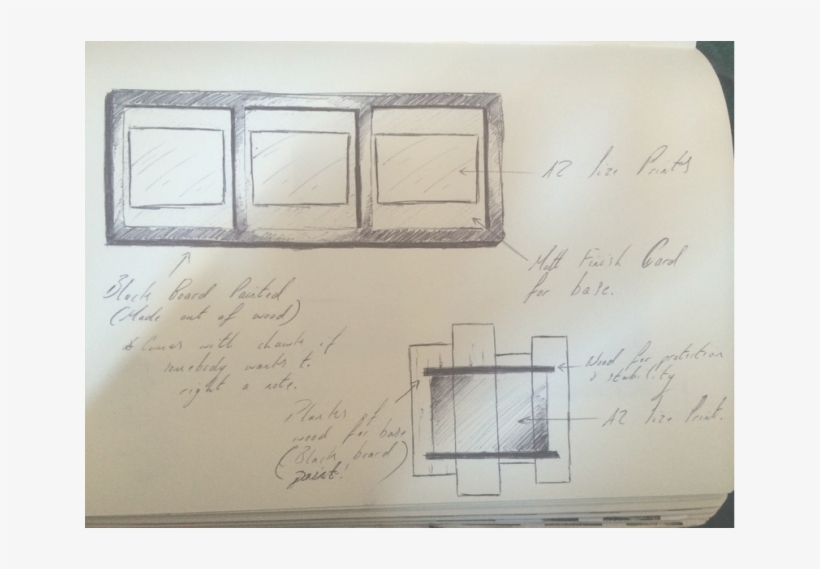 A2 Size Prints
Matt Finish Card
for base.
Black Board Painted
(Made out of wood)
& Comes with chawk if
somebody wants to
right a note.
Wood for protection
& stability
Planks of
wood for base
(Black board)
paint!
A2 Size Print.